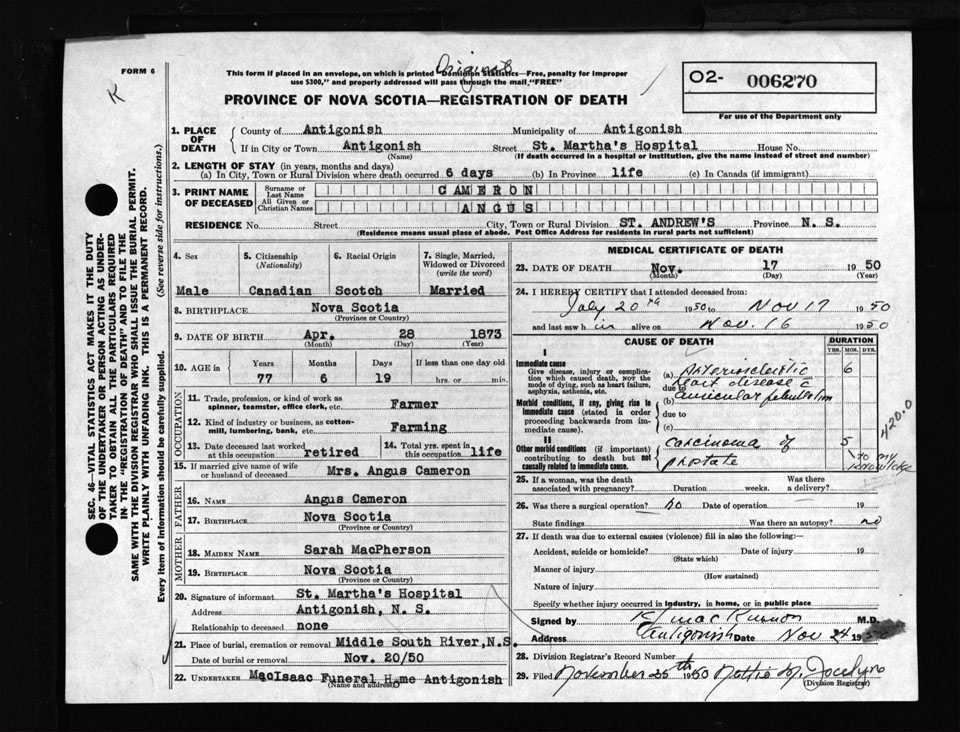 FORM 6
K
Original
This form if placed in an envelope, on which is printed "Dominion Statistics—Free, penalty for improper
use $300," and properly addressed will pass through the mail "FREE"
PROVINCE OF NOVA SCOTIA—REGISTRATION OF DEATH
O2- 006270
For use of the Department only
SEC. 46—VITAL STATISTICS ACT MAKES IT THE DUTY
OF THE UNDERTAKER OR PERSON ACTING AS UNDER-
TAKER TO OBTAIN ALL THE PARTICULARS REQUIRED
IN THE "REGISTRATION OF DEATH" AND TO FILE THE
SAME WITH THE DIVISION REGISTRAR WHO SHALL ISSUE THE BURIAL PERMIT.
WRITE PLAINLY WITH UNFADING INK. THIS IS A PERMANENT RECORD.
Every item of information should be carefully supplied. (See reverse side for instructions.)
1. PLACE OF DEATH
County of Antigonish Municipality of Antigonish
If in City or Town Antigonish Street St. Martha's Hospital House No.
(Name) (If death occurred in a hospital or institution, give the name instead of street and number)
2. LENGTH OF STAY (in years, months and days)
(a) In City, Town or Rural Division where death occurred 6 days (b) In Province life (c) In Canada (if immigrant)
3. PRINT NAME OF DECEASED
Surname or Last Name CAMERON
All Given or Christian Names ANGUS
RESIDENCE No. Street City, Town or Rural Division ST. ANDREW'S Province N. S.
(Residence means usual place of abode. Post Office Address for residents in rural parts not sufficient)
4. Sex 5. Citizenship (Nationality) 6. Racial Origin 7. Single, Married, Widowed or Divorced (write the word)
Male Canadian Scotch Married
8. BIRTHPLACE Nova Scotia
(Province or Country)
9. DATE OF BIRTH Apr. 28 1873
(Month) (Day) (Year)
10. AGE IN Years Months Days If less than one day old
77 6 19 hrs. or min.
OCCUPATION
11. Trade, profession, or kind of work as
spinner, teamster, office clerk, etc. Farmer
12. Kind of industry or business, as cotton-
mill, lumbering, bank, etc. Farming
13. Date deceased last worked at this occupation retired 14. Total yrs. spent in this occupation life
15. If married give name of wife
or husband of deceased Mrs. Angus Cameron
FATHER
16. NAME Angus Cameron
17. BIRTHPLACE Nova Scotia
(Province or Country)
MOTHER
18. MAIDEN NAME Sarah MacPherson
19. BIRTHPLACE Nova Scotia
(Province or Country)
20. Signature of informant St. Martha's Hospital
Address Antigonish, N. S.
Relationship to deceased none
21. Place of burial, cremation or removal Middle South River, N.S.
Date of burial or removal Nov. 20/50
22. UNDERTAKER MacIsaac Funeral Home Antigonish
(Name and address)
MEDICAL CERTIFICATE OF DEATH
23. DATE OF DEATH Nov. 17 1950
(Month) (Day) (Year)
24. I HEREBY CERTIFY that I attended deceased from:
July 20th 1950 to Nov 17 1950
and last saw h im alive on Nov. 16 1950
CAUSE OF DEATH DURATION
YRS. MOS. DYS.
I
Immediate cause
Give disease, injury or complication which caused death, NOT the mode of dying, such as heart failure, asphyxia, asthenia, etc.
(a) Arteriosclerotic 6
due to heart disease c
Morbid conditions, if any, giving rise to immediate cause (stated in order proceeding backwards from immediate cause).
(b) auricular fibrillation
due to
(c)
420.0
II
Other morbid conditions (if important) contributing to death but not causally related to immediate cause.
carcinoma of 5
prostate to my knowledge
25. If a woman, was the death associated with pregnancy? Duration weeks. Was there a delivery?
26. Was there a surgical operation? no Date of operation 19
State findings Was there an autopsy? no
27. If death was due to external causes (violence) fill in also the following:—
Accident, suicide or homicide? Date of injury 19
(State which)
Manner of injury
(How sustained)
Nature of injury
Specify whether injury occurred in industry, in home, or in public place
Signed by M.D.
Address Antigonish Date Nov 24 1950
28. Division Registrar's Record Number
29. Filed November 25th 1950 Nettie M. Jocelyn
(Division Registrar)